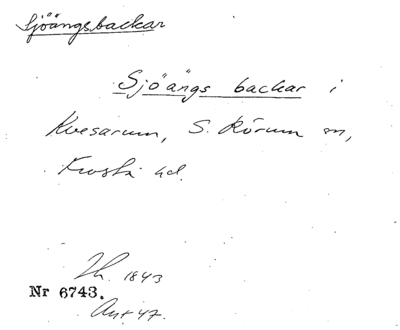 Sjöängsbackar
Sjöängs backar i
Kvesarum, S. Rörum sn,
Frosta hd.
Th. 1843
Nr 6743.
Ant 47.